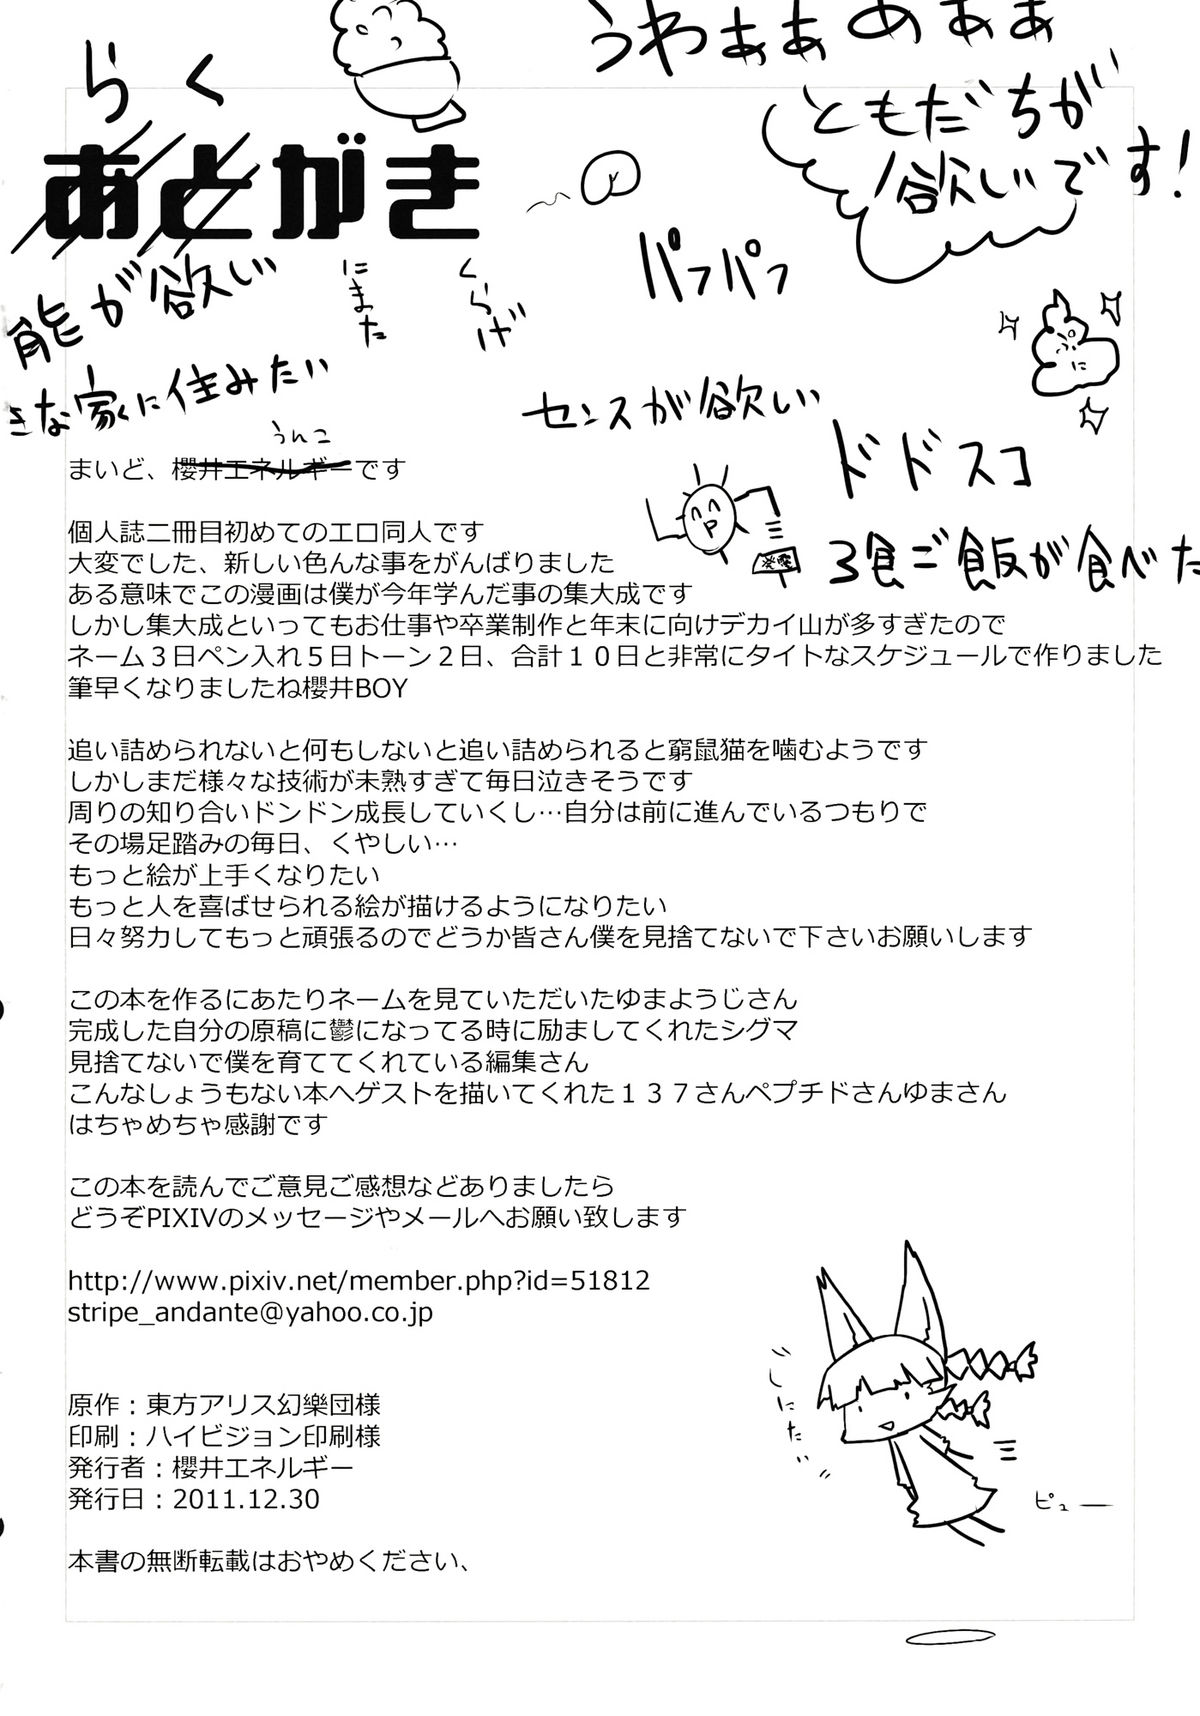 うわぁぁあぁぁ
らく
ともだちが
欲しいです!
あとがき
パフパフ
能が欲しい
にまた
くらげ
きな家に住みたい
センスが欲しい
うんこ
ドドスコ
まいど、櫻井エネルギーです
3食ご飯が食べた
個人誌二冊目初めてのエロ同人です
大変でした、新しい色んな事をがんばりました
ある意味でこの漫画は僕が今年学んだ事の集大成です
しかし集大成といってもお仕事や卒業制作と年末に向けデカイ山が多すぎたので
ネーム3日ペン入れ5日トーン2日、合計10日と非常にタイトなスケジュールで作りました
筆早くなりましたね櫻井BOY
追い詰められないと何もしないと追い詰められると窮鼠猫を噛むようです
しかしまだ様々な技術が未熟すぎて毎日泣きそうです
周りの知り合いドンドン成長していくし…自分は前に進んでいるつもりで
その場足踏みの毎日、くやしい…
もっと絵が上手くなりたい
もっと人を喜ばせられる絵が描けるようになりたい
日々努力してもっと頑張るのでどうか皆さん僕を見捨てないで下さいお願いします
この本を作るにあたりネームを見ていただいたゆまようじさん
完成した自分の原稿に鬱になってる時に励ましてくれたシグマ
見捨てないで僕を育ててくれている編集さん
こんなしょうもない本へゲストを描いてくれた137さんペプチドさんゆまさん
はちゃめちゃ感謝です
この本を読んでご意見ご感想などありましたら
どうぞPIXIVのメッセージやメールへお願い致します
http://www.pixiv.net/member.php?id=51812
stripe_andante@yahoo.co.jp
原作:東方アリス幻樂団様
印刷:ハイビジョン印刷様
発行者:櫻井エネルギー
発行日:2011.12.30
しにたい
ピューー
本書の無断転載はおやめください、